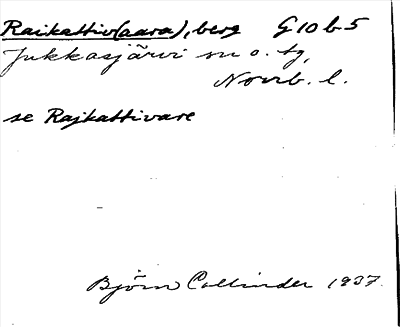 Raikattiv(aara), berg G10b5
Jukkasjärvi sn o. tg,
Norrb. l.
se Rajkattivare
Björn Collinder 1937.